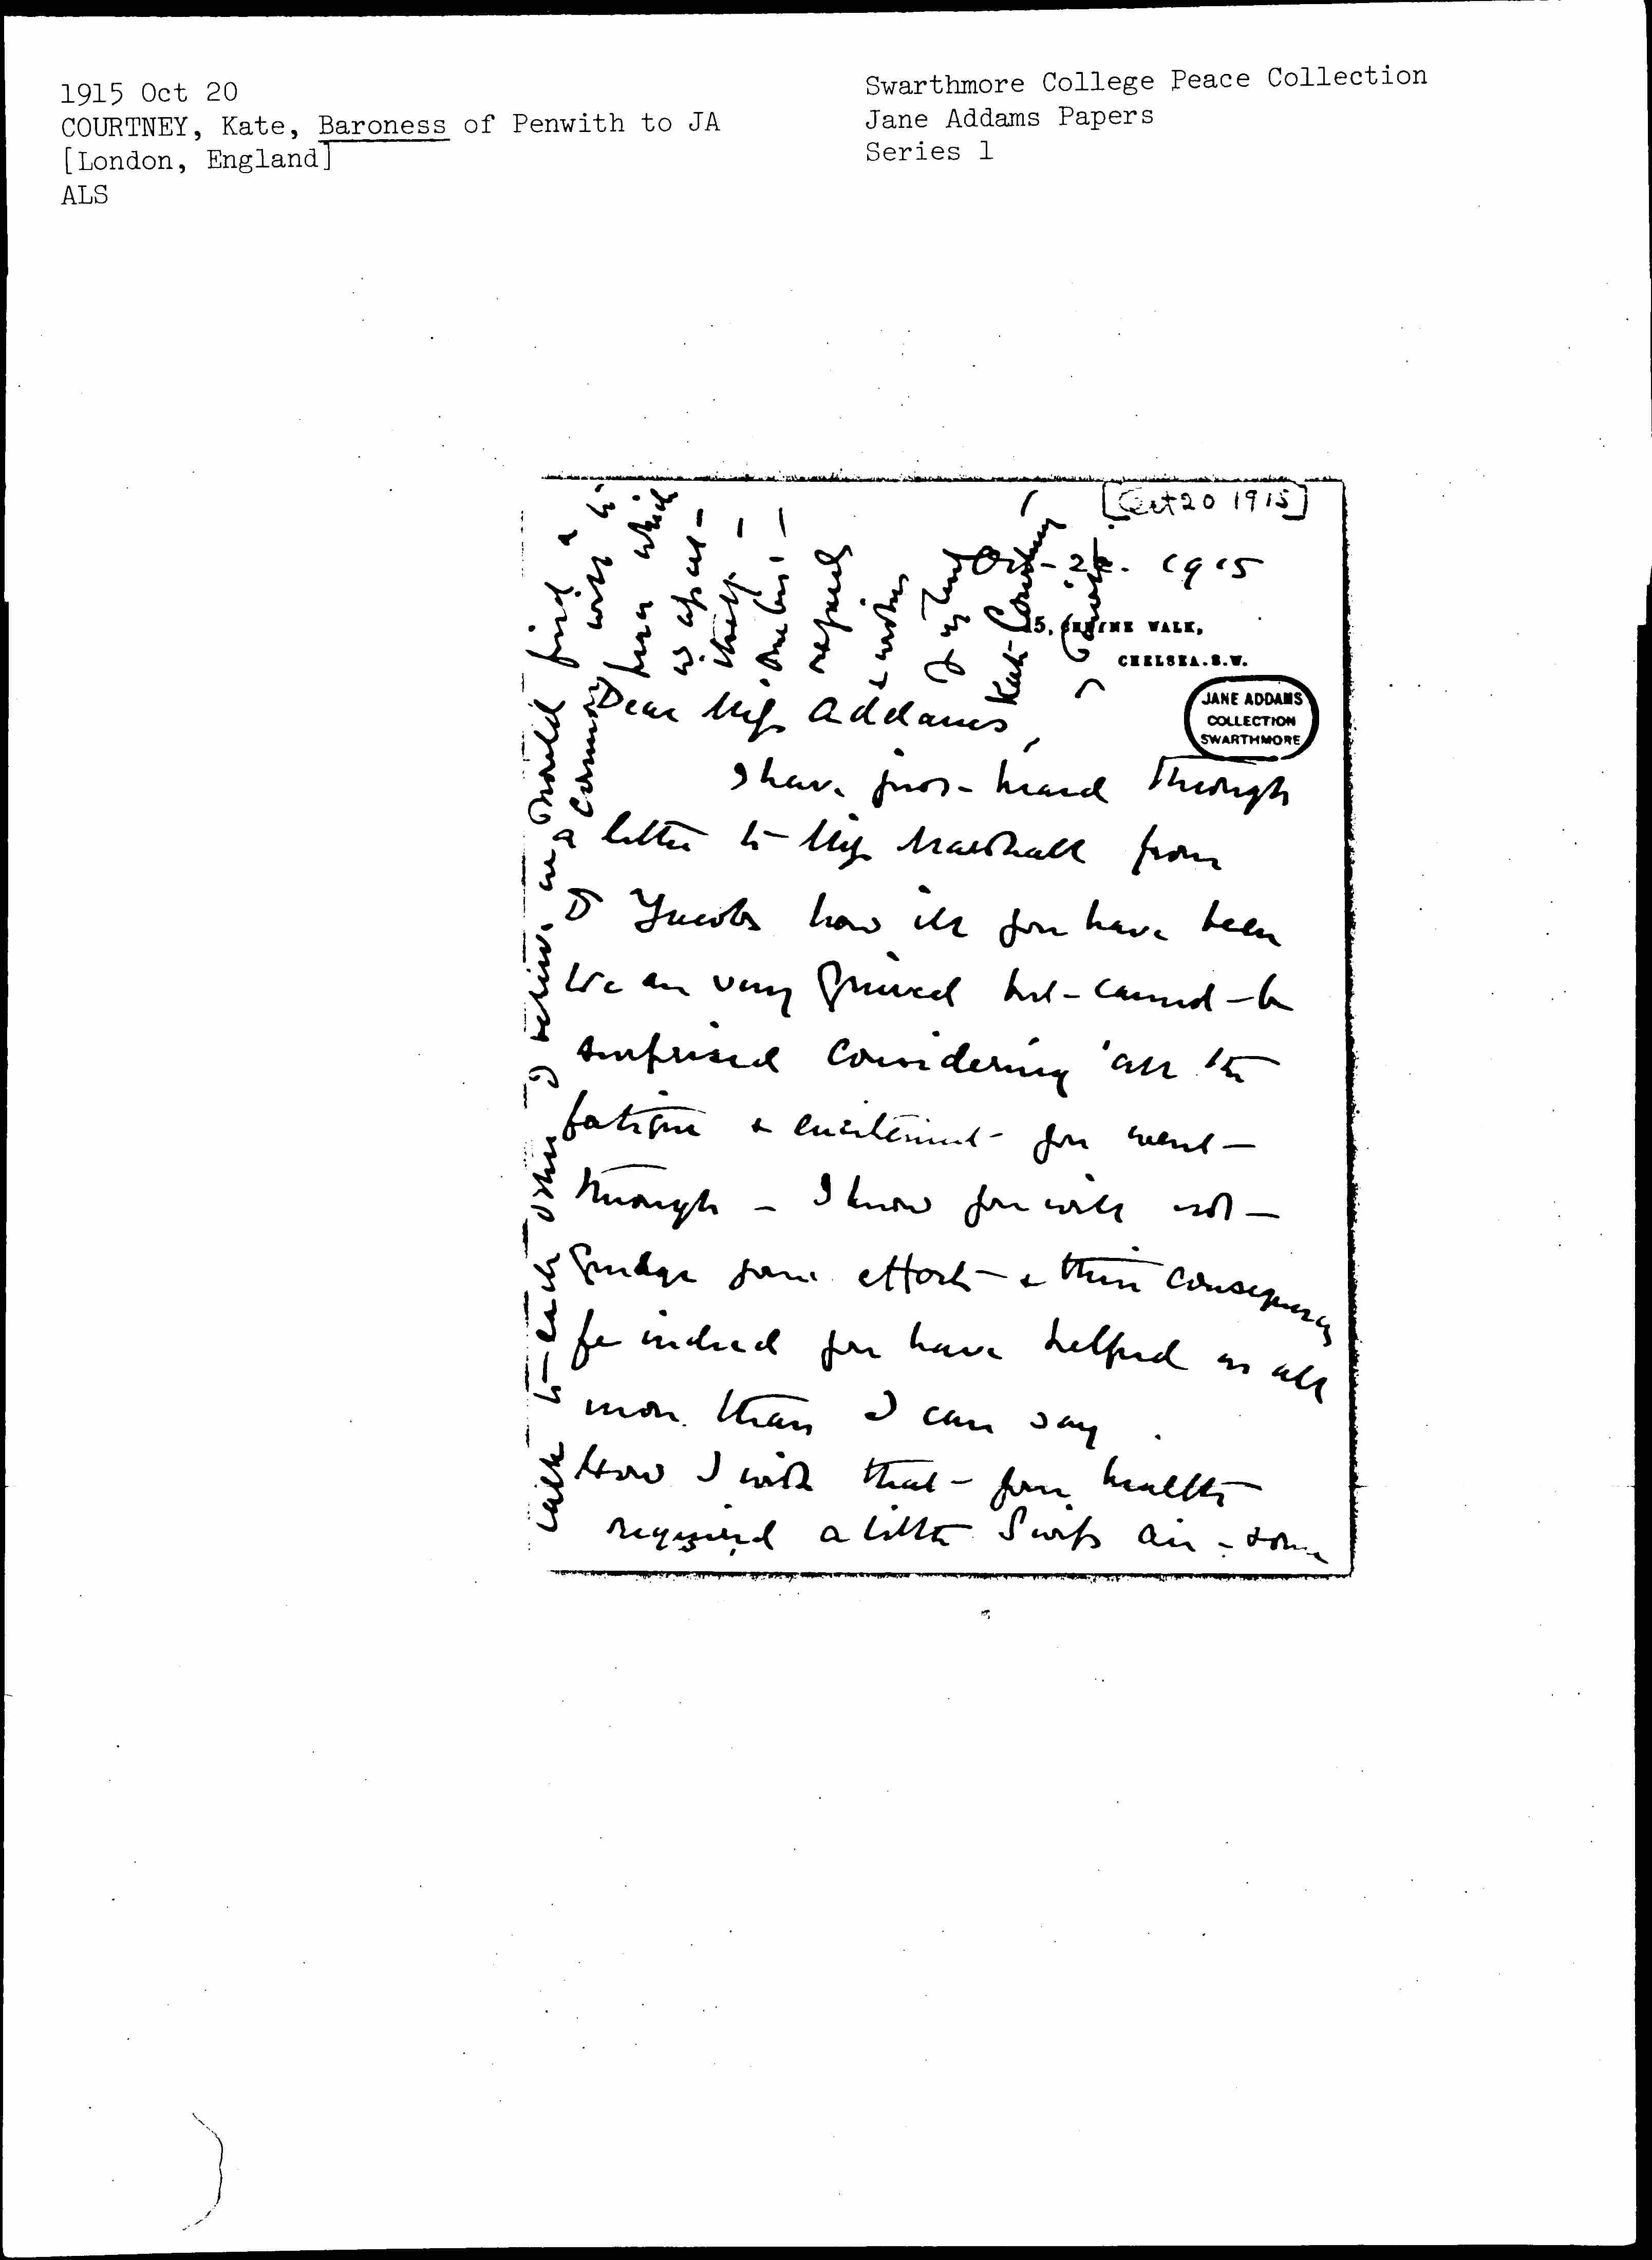 1915 Oct 20
COURTNEY, Kate, Baroness of Penwith to JA
[London, England]
ALS
Swarthmore College Peace Collection
Jane Addams Papers
Series 1
[Oct 20 1915]
Oct- 1915
15, CHEYNE WALK,
CHELSEA. S.W.
JANE ADDAMS
COLLECTION
SWARTHMORE
Dear Miss Addams,
I have just heard through
a letter to Miss Marshall from
Dr Jacobs how ill you have been
We are very grieved but cannot be
surprised considering all the
fatigue & excitement you went
through - I know you will not
grudge your efforts & their consequences
for indeed you have helped us all
more than I can say.
How I wish that your health
required a little Swiss air - some
talk to each other I believe we should find a
common
will to
peace which
is apart
itself -
One
&
Kate Courtney